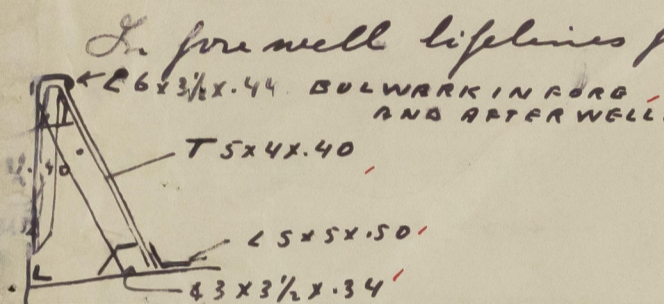 In fore well lifelines
[6 x 3½ x .44 BULWARK IN FORE
AND AFTER WELL.
T 5 x 4 x .40
.40
L 5 x 5 x .50
3 x 3½ x .34